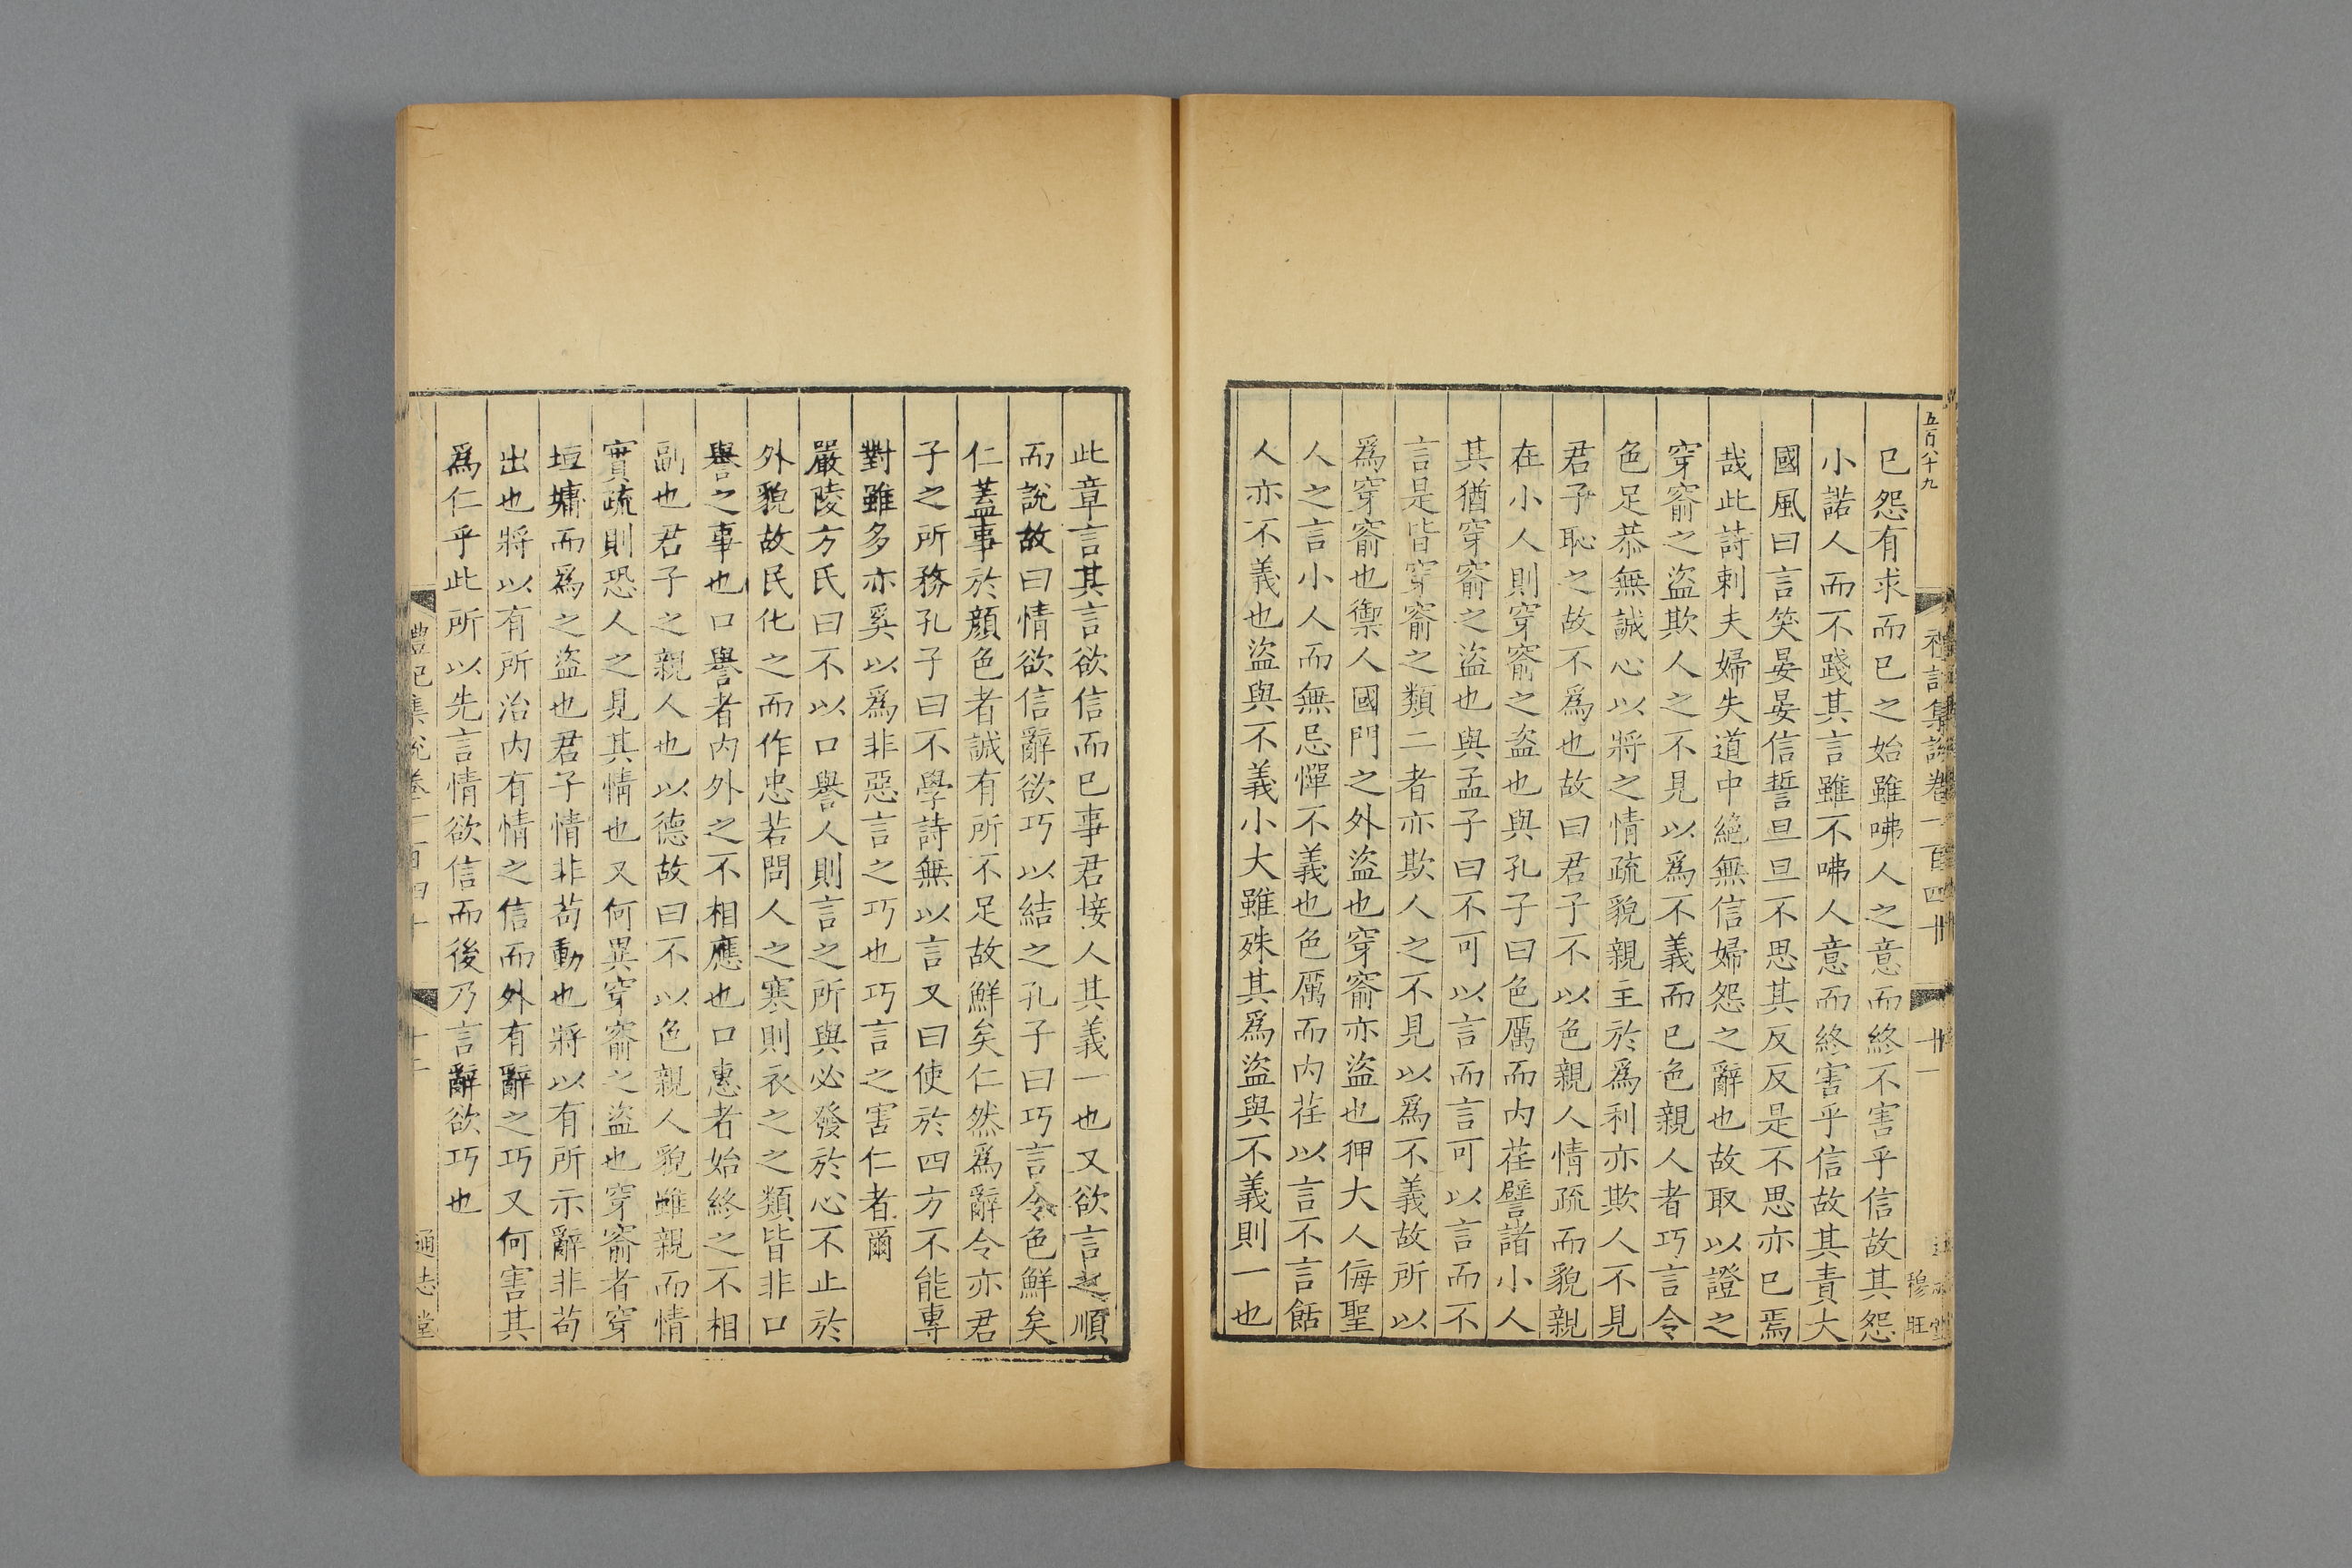 五百八十九
禮記集説卷一百四十
十一
穆旺
已怨有求而已之始雖咈人之意而終不害乎信故其怨
小諾人而不踐其言雖不咈人意而終害乎信故其責大
國風曰言笑晏晏信誓旦旦不思其反反是不思亦已焉
哉此詩刺夫婦失道中絕無信婦怨之辭也故取以證之
穿窬之盜欺人之不見以爲不義而已色親人者巧言令
色足恭無誠心以將之情疏貌親主於爲利亦欺人不見
君子恥之故不爲也故曰君子不以色親人情疏而貌親
在小人則穿窬之盜也與孔子曰色厲而内荏譬諸小人
其猶穿窬之盜也與孟子曰不可以言而言可以言而不
言是皆穿窬之類二者亦欺人之不見以爲不義故所以
爲穿窬也禦人國門之外盜也穿窬亦盜也狎大人侮聖
人之言小人而無忌憚不義也色厲而内荏以言不言餂
人亦不義也盜與不義小大雖殊其爲盜與不義則一也
此章言其言欲信而已事君接人其義一也又欲言之順
而說故曰情欲信辭欲巧以結之孔子曰巧言令色鮮矣
仁蓋事於顏色者誠有所不足故鮮矣仁然爲辭令亦君
子之所務孔子曰不學詩無以言又曰使於四方不能專
對雖多亦奚以爲非惡言之巧也巧言之害仁者爾
嚴陵方氏曰不以口譽人則言之所與必發於心不止於
外貌故民化之而作忠若問人之寒則衣之之類皆非口
譽之事也口譽者内外之不相應也口惠者始終之不相
副也君子之親人也以德故曰不以色親人貌雖親而情
實疏則恐人之見其情也又何異穿窬之盜也穿窬者穿
垣墉而爲之盜也君子情非苟動也將以有所示辭非苟
出也將以有所治内有情之信而外有辭之巧又何害其
爲仁乎此所以先言情欲信而後乃言辭欲巧也
禮記集說卷一百四十
十二
通志堂